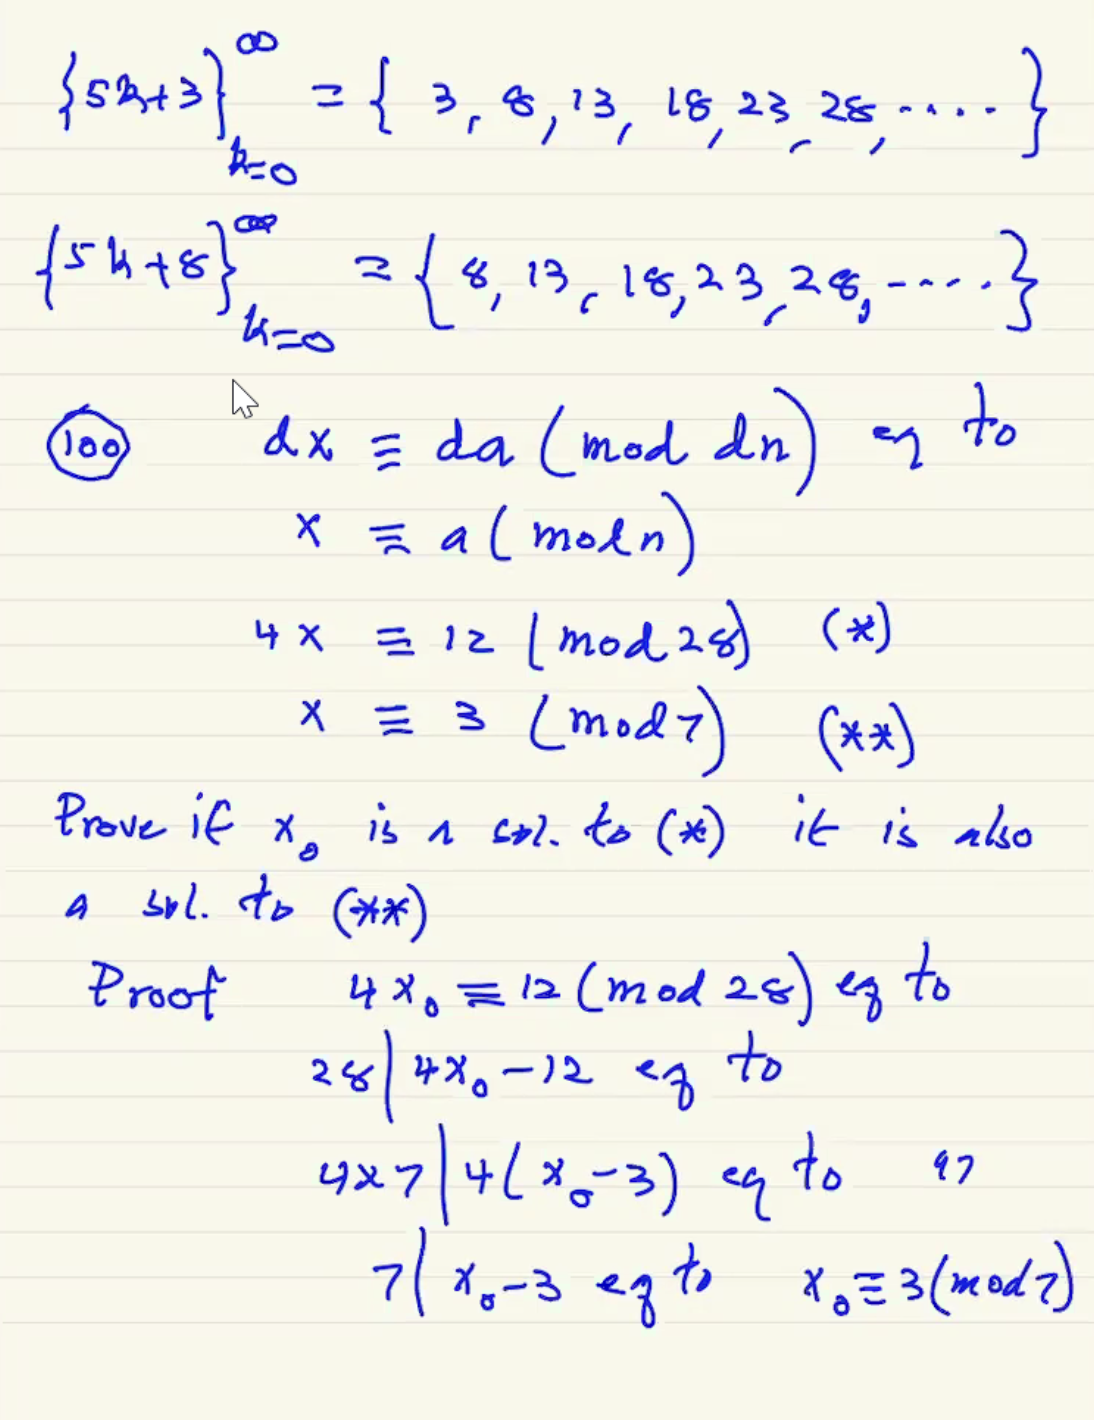 {5k+3}_{k=0}^∞ = { 3, 8, 13, 18, 23, 28, ..... }
{5k+8}_{k=0}^∞ = { 8, 13, 18, 23, 28, ..... }
(100) dx ≡ da (mod dn) eq to
x ≡ a (mod n)
4x ≡ 12 (mod 28) (*)
x ≡ 3 (mod 7) (**)
Prove if x₀ is a sol. to (*) it is also
a sol. to (**)
Proof 4x₀ ≡ 12 (mod 28) eq to
28 | 4x₀ − 12 eq to
4x7 | 4(x₀ − 3) eq to 97
7 | x₀ − 3 eq to x₀ ≡ 3 (mod 7)